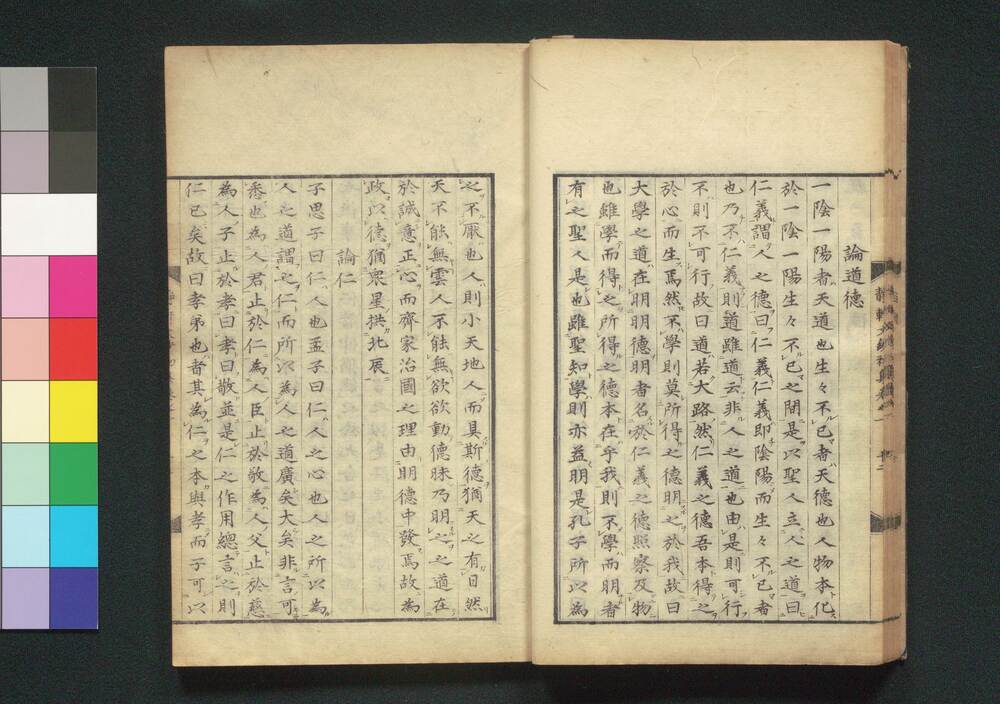 論道德
一陰一陽者天道也生々不已者天德也人物本化
於一陰一陽生々不已之閒是以聖人立人之道曰
仁義謂人之德曰仁義仁義即陰陽而生々不已者
也乃不仁義則道雖道云非人之道也由是則可行
不則不可行故曰道若大路然仁義之德吾本得之
於心而生焉然不學則莫所得之德明之於我故曰
大學之道在明明德明者名於仁義之德照察及物
也雖學而得之所得之德本在乎我則不學而明者
有之聖人是也雖聖知學則亦益明是孔子所以為
之不厭也人則小天地人而具斯德猶天之有日然
天不能無雲人不能無欲欲動德昧乃明之之道在
於誠意正心而齊家治國之理由明德中發焉故為
政以德猶眾星拱北辰
論仁
子思子曰仁人也孟子曰仁人之心也人之所以為
人之道謂之仁而所以為人之道廣矣大矣非言可
悉也為人君止於仁為人臣止於敬為人父止於慈
為人子止於孝曰孝曰敬並是仁之作用總言之則
仁已矣故曰孝弟也者其為仁之本與孝而子可以